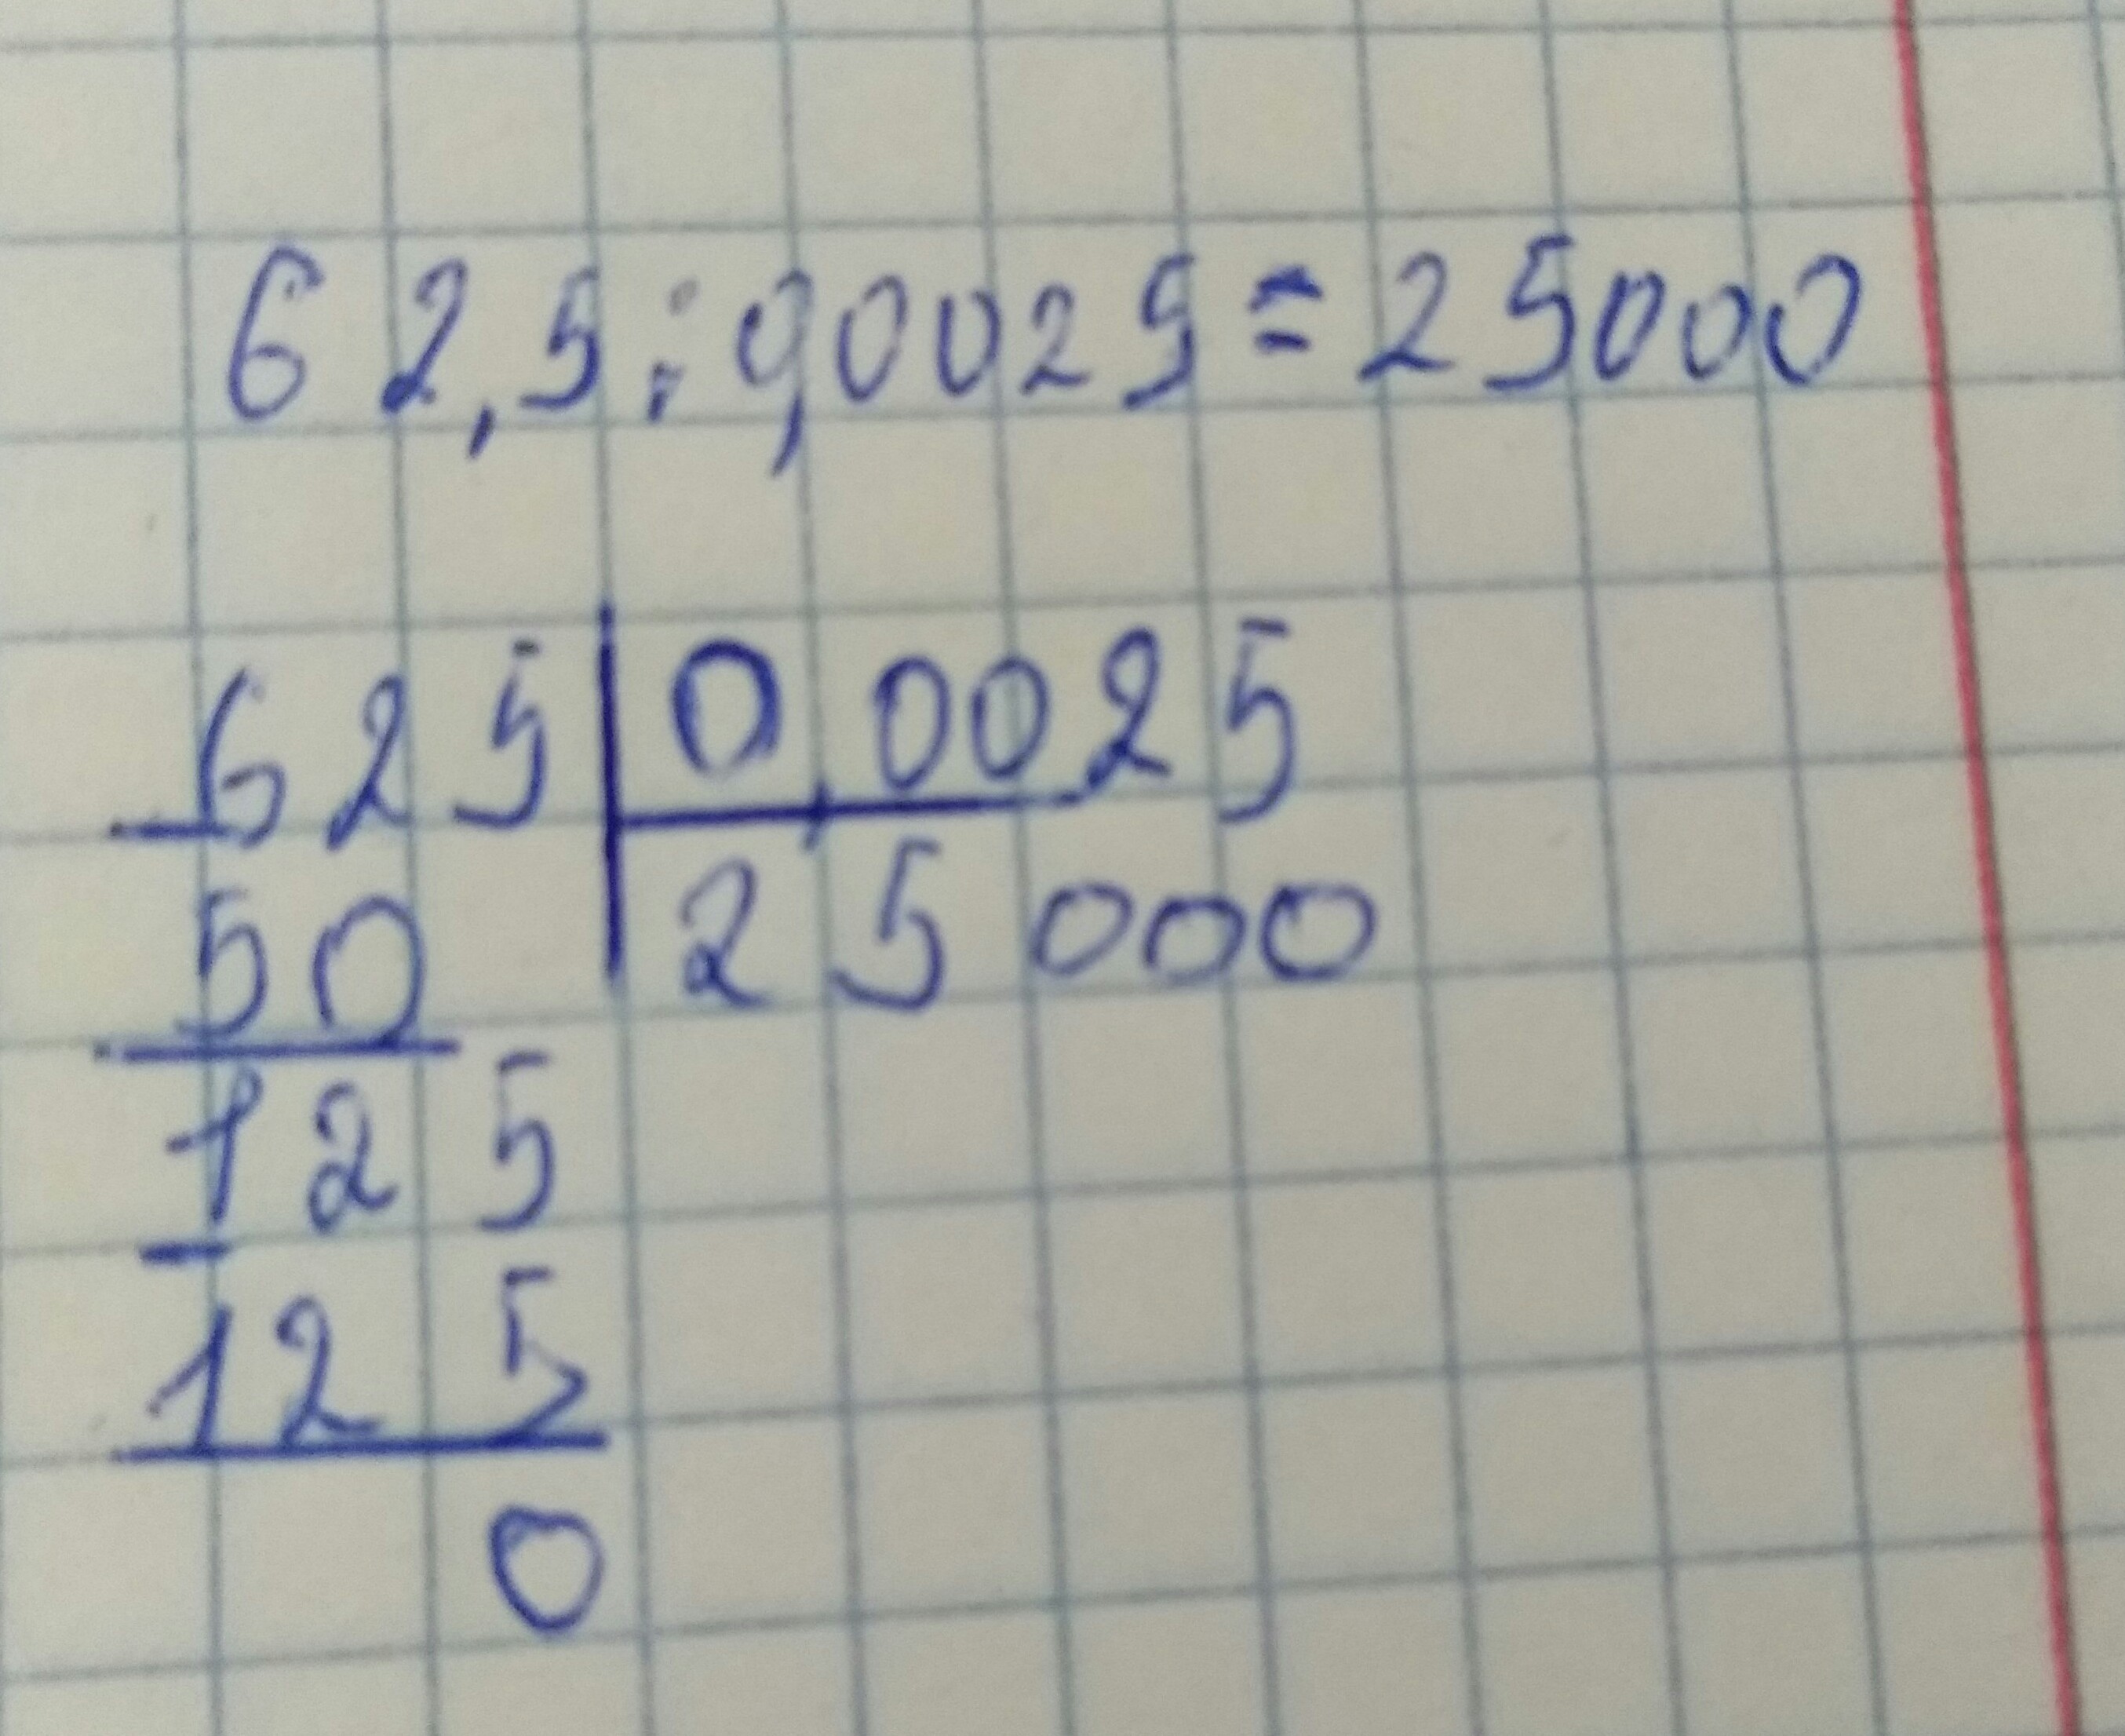 62,5:0,0025=25000
625|0,0025
50 25000
125
125
0